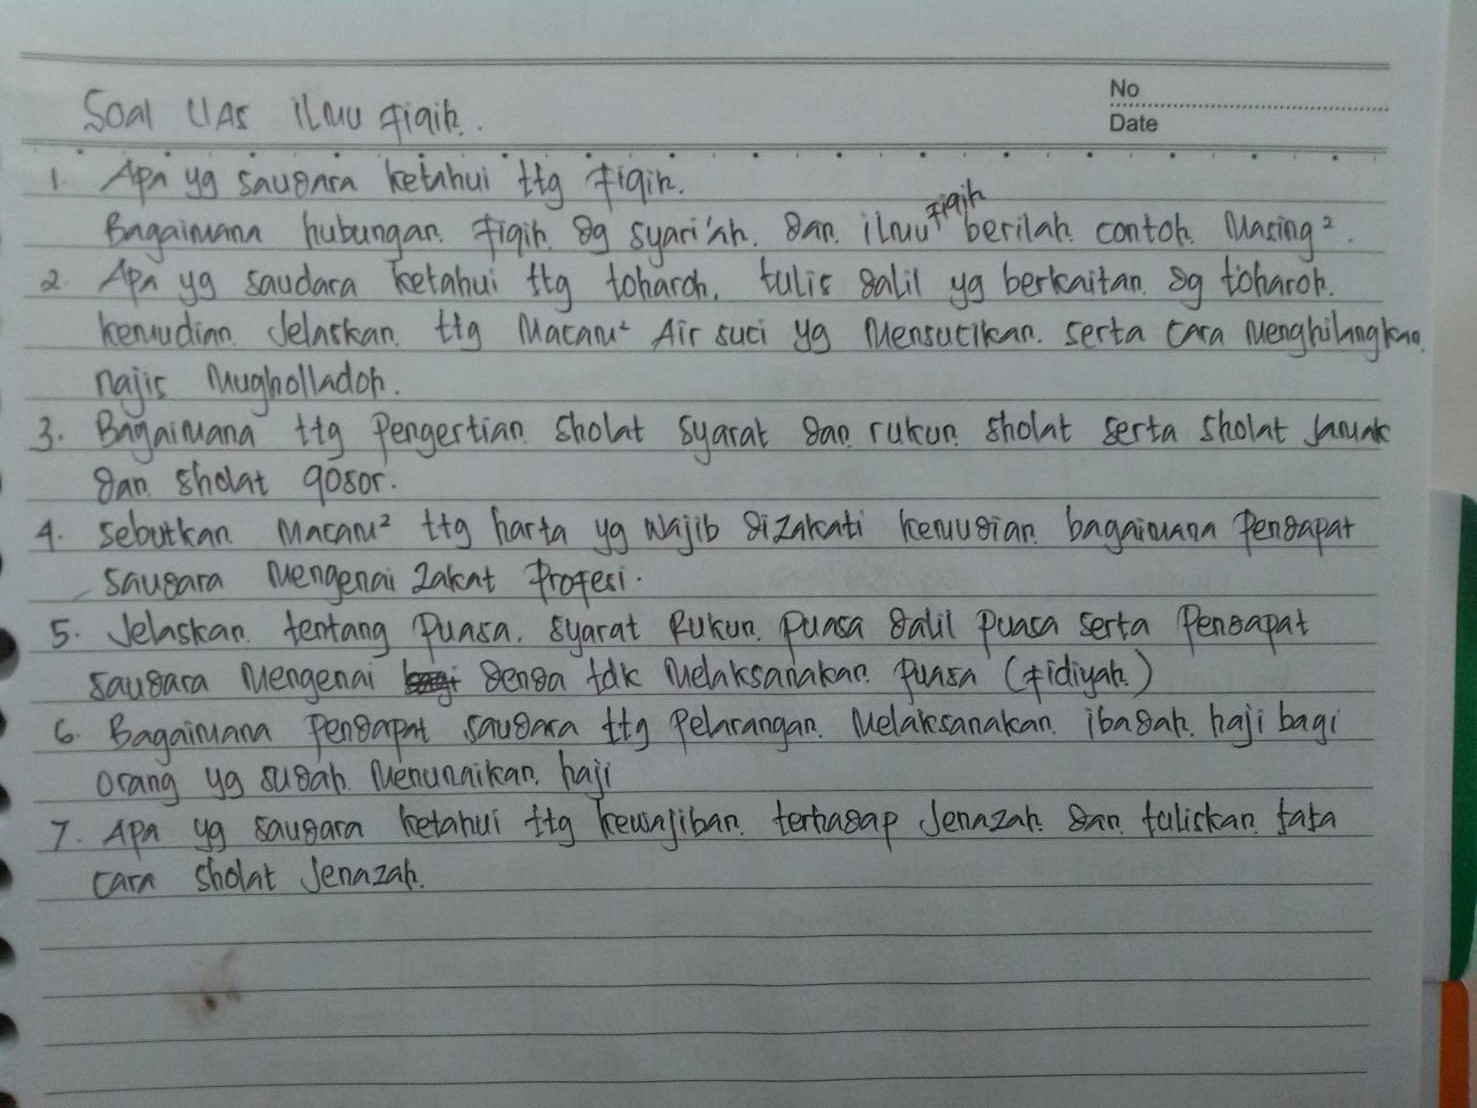 No
Date
Soal UAS ilmu fiqih.
1. Apa yg saudara ketahui ttg fiqih.
Bagaimana hubungan fiqih dg syari'ah. dan ilmu fiqih berilah contoh Masing².
2. Apa yg saudara ketahui ttg toharoh, tulis dalil yg berkaitan dg toharoh.
kemudian Jelaskan ttg Macam² Air suci yg Mensucikan. serta cara Menghilangkan
najis Mugholladoh.
3. Bagaimana ttg Pengertian sholat syarat dan rukun sholat serta sholat Jamak
dan sholat qosor.
4. Sebutkan Macam² ttg harta yg wajib dizakati kemudian bagaimana Pendapat
saudara Mengenai zakat Profesi.
5. Jelaskan tentang Puasa. syarat Rukun puasa dalil puasa serta Pendapat
saudara Mengenai denda tdk Melaksanakan Puasa (fidiyah)
6. Bagaimana Pendapat saudara ttg Pelarangan Melaksanakan ibadah haji bagi
orang yg sudah Menunaikan haji
7. Apa yg saudara ketahui ttg kewajiban terhadap Jenazah dan tuliskan tata
cara sholat Jenazah.